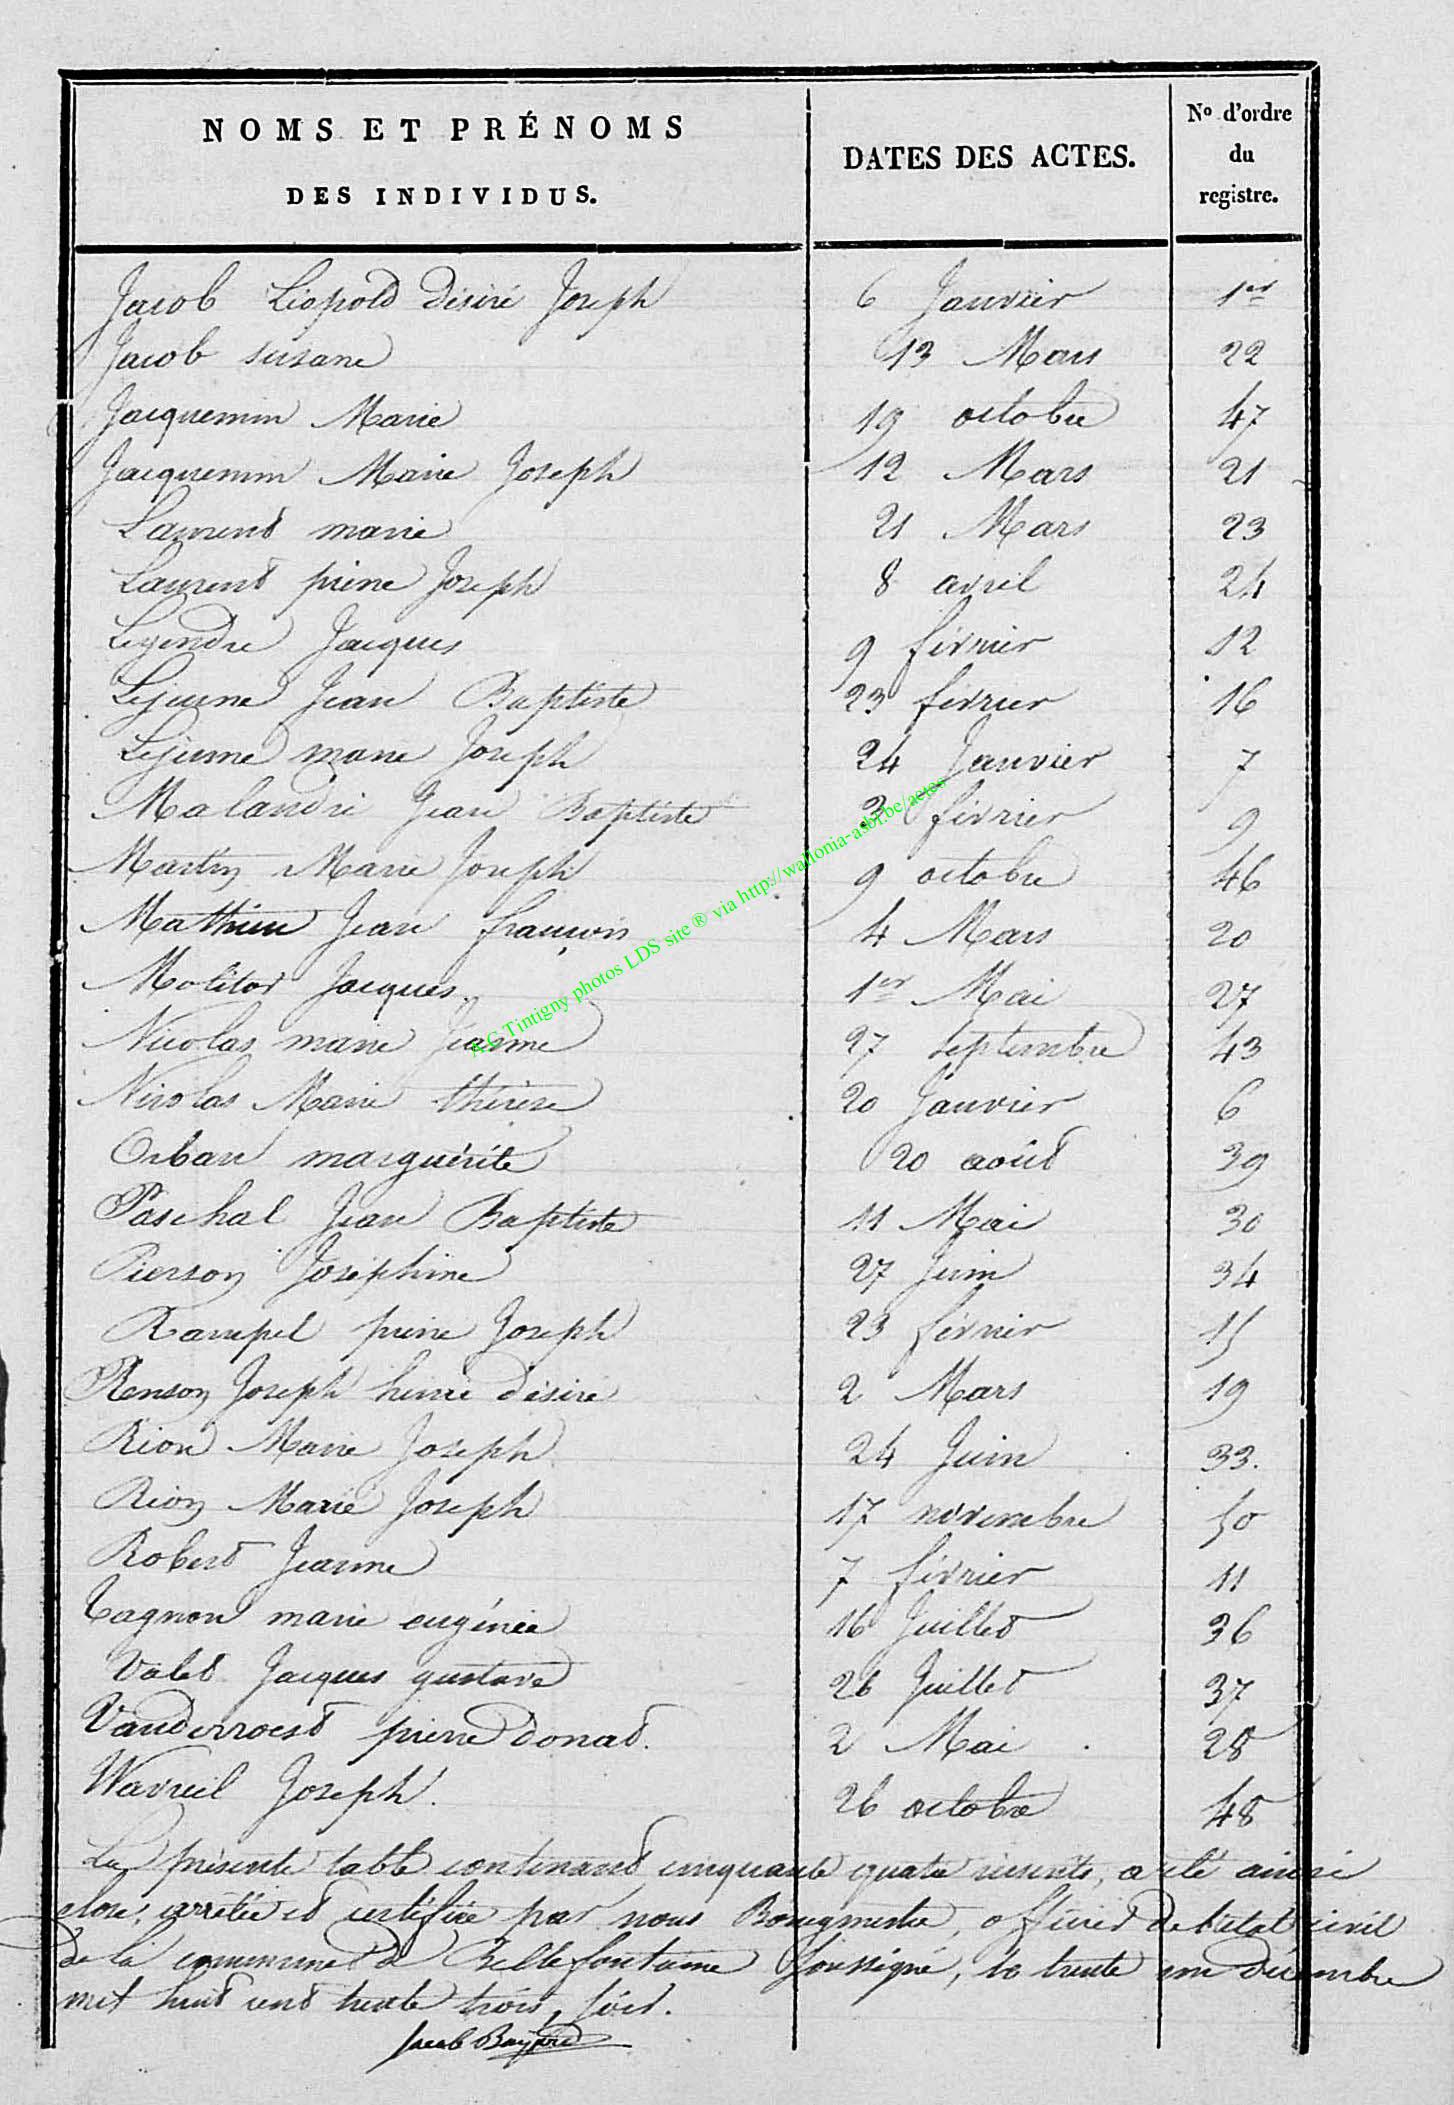 NOMS ET PRÉNOMS
DES INDIVIDUS.
DATES DES ACTES.
Nº d'ordre
du
registre.
Jacob Léopold Désiré Joseph 6 Janvier 1er
Jacob susane 13 Mars 22
Jacquemin Marie 19 octobre 47
Jacquemin Marie Joseph 12 Mars 21
Laurent marie 21 Mars 23
Laurent pierre Joseph 8 avril 24
Legendre Jacques 9 février 12
Lejeune Jean Baptiste 23 février 16
Lejeune marie Joseph 24 Janvier 7
Malandri Jean Baptiste 3 février 9
Martin Marie Joseph 9 octobre 46
Mathieu Jean françois 4 Mars 20
Molitor Jacques. 1er Mai 27
Nicolas marie Jeanne 27 septembre 43
Nicolas Marie thérèse 20 Janvier 6
Orban marguérite 20 août 39
Paschal Jean Baptiste 11 Mai 30
Pierson Joséphine 27 Juin 34
Rampel pierre Joseph 23 février 15
Renson Joseph henri désiré 2 Mars 19
Rion Marie Joseph 24 Juin 33.
Rion Marie Joseph 17 novembre 50
Robert Jeanne 7 février 11
Tagnon marie eugénie 16 Juillet 36
Valet Jacques gustave 26 Juillet 37
Vanderroest pierre Donat. 2 Mai 28
Wavreil Joseph. 26 octobre 48
La présente table contenant cinquante quatre inscrits, a été ainsi
close, arrêtée et certifiée par nous Bourgmestre, officier de l'état civil
de la commune de Bellefontaine soussigné, le trente un Décembre
mil huit cent trente trois,
Jacob Bayard
A.C Tintigny photos LDS site ® via http://wallonia-asbl.be/actes